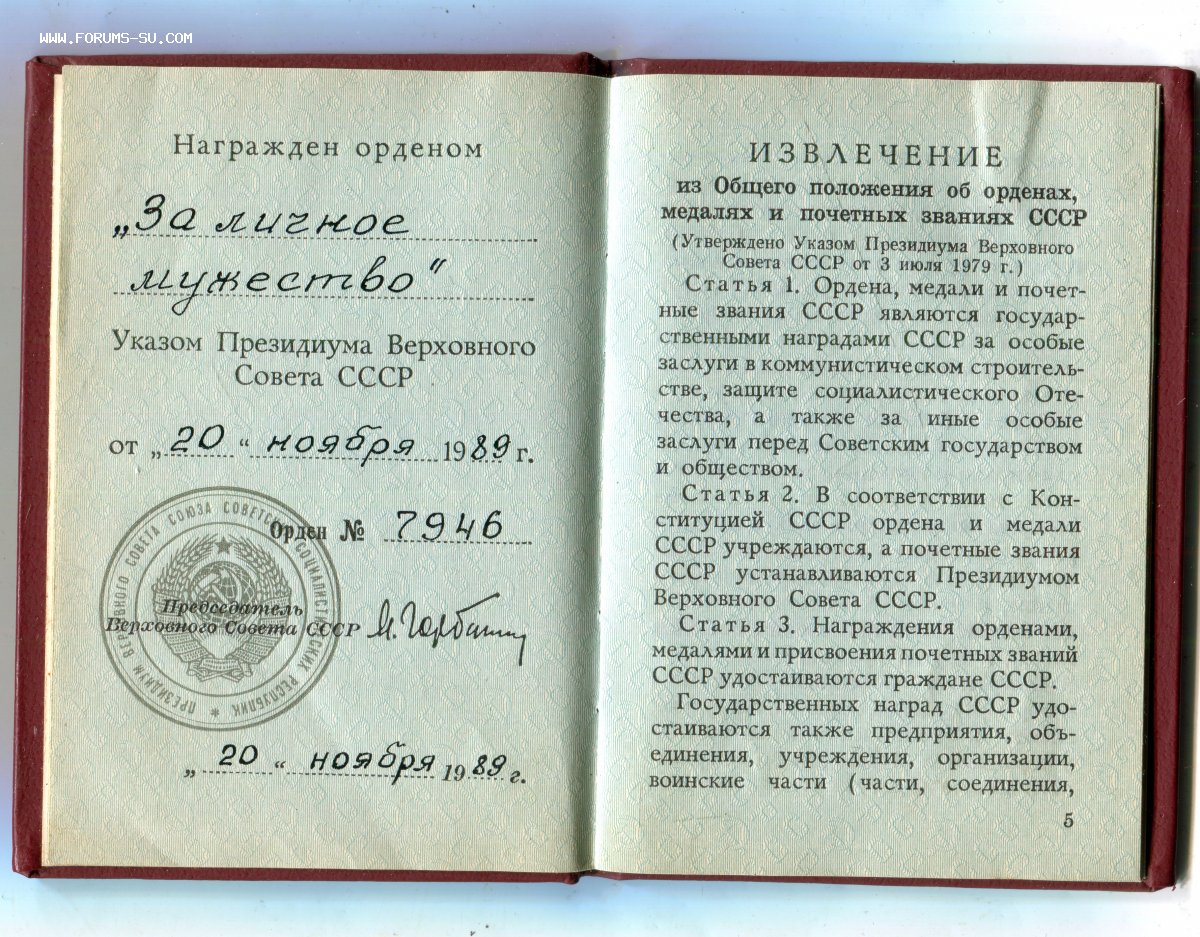 WWW.FORUMS-SU.COM
Награжден орденом
„За личное
мужество"
Указом Президиума Верховного
Совета СССР
от „20“ ноября 1989 г.
Орден № 7946
Председатель
Верховного Совета СССР М. Горбачев
„20“ ноября 1989 г.
ПРЕЗИДИУМ ВЕРХОВНОГО СОВЕТА СОЮЗА СОВЕТСКИХ СОЦИАЛИСТИЧЕСКИХ РЕСПУБЛИК *
ИЗВЛЕЧЕНИЕ
из Общего положения об орденах,
медалях и почетных званиях СССР
(Утверждено Указом Президиума Верховного
Совета СССР от 3 июля 1979 г.)
Статья 1. Ордена, медали и почет-
ные звания СССР являются государ-
ственными наградами СССР за особые
заслуги в коммунистическом строитель-
стве, защите социалистического Оте-
чества, а также за иные особые
заслуги перед Советским государством
и обществом.
Статья 2. В соответствии с Кон-
ституцией СССР ордена и медали
СССР учреждаются, а почетные звания
СССР устанавливаются Президиумом
Верховного Совета СССР.
Статья 3. Награждения орденами,
медалями и присвоения почетных званий
СССР удостаиваются граждане СССР.
Государственных наград СССР удо-
стаиваются также предприятия, объ-
единения, учреждения, организации,
воинские части (части, соединения,
5